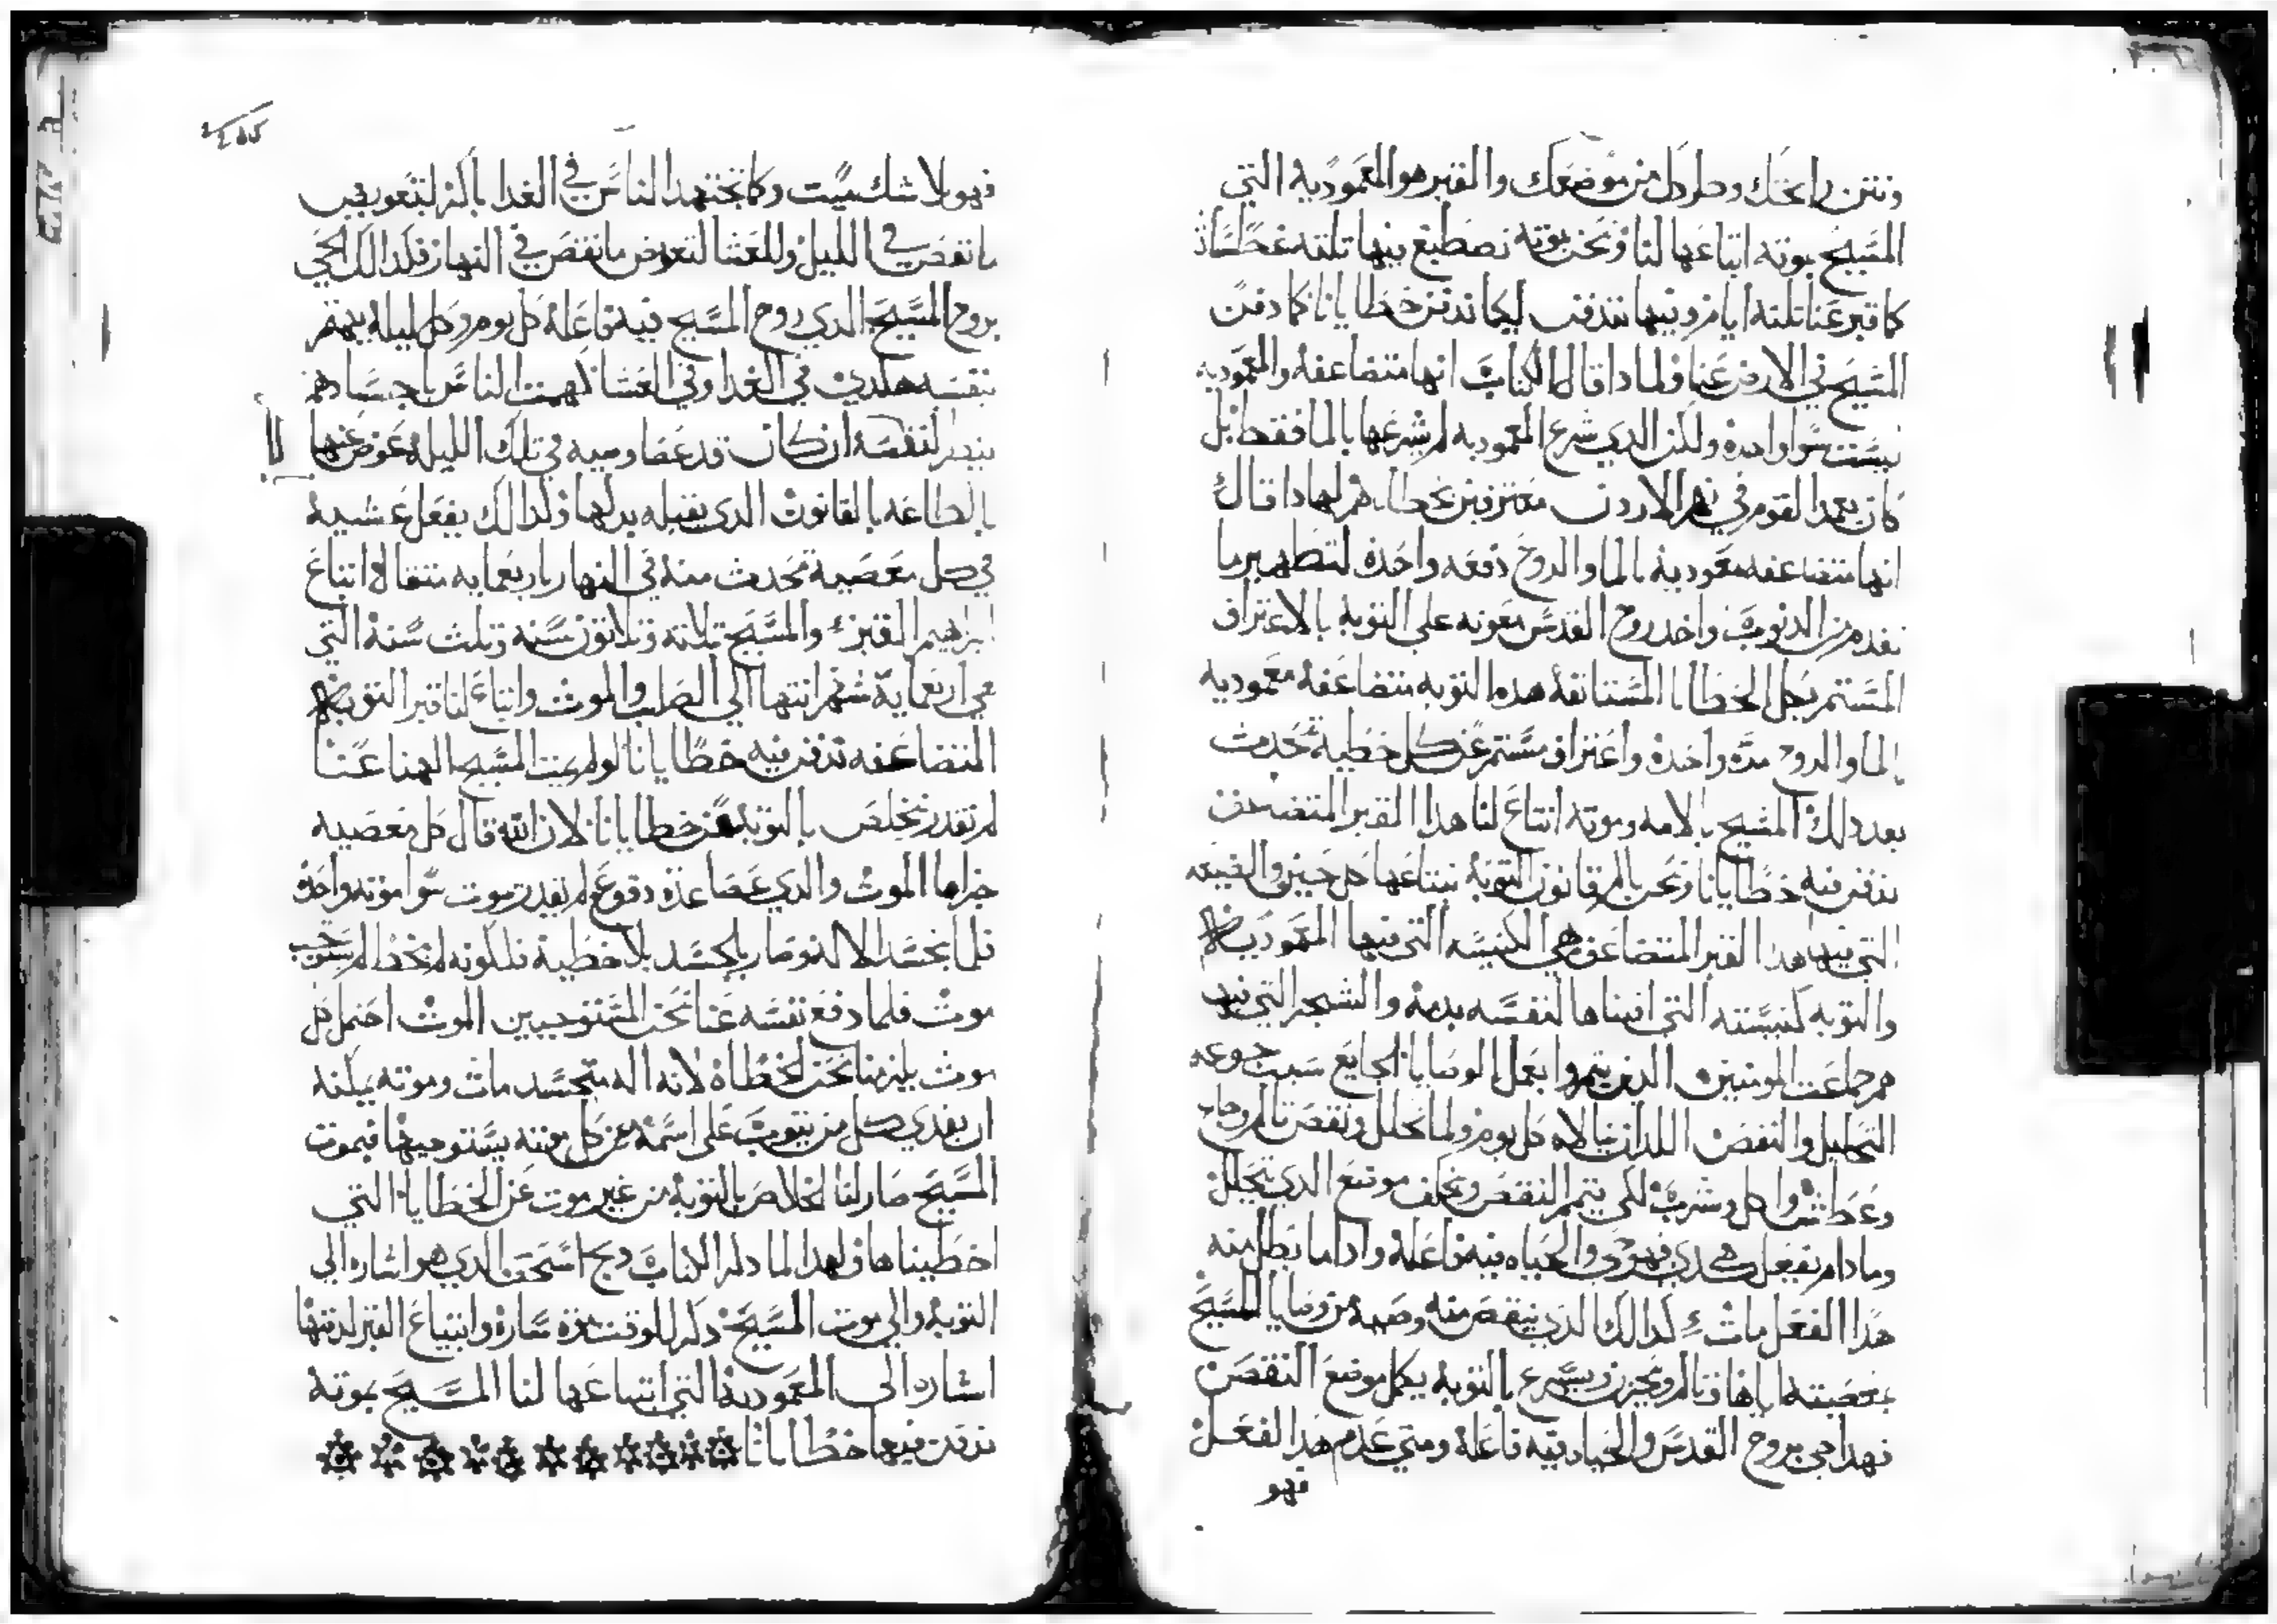 ونتن رايحتك وطردل من موضعك والقبر هو المعموديه التي
المسيح بموته ابتاعها لنا ونحن بموته نصطبغ فيها تلته غطسات
كما قبر عنا تلته ايام وفيها نندفن ليكما ندفن خطايانا كما دفن
المسيح في الارض عنا ولمادا قال الكتاب انها متضاعفه والمعموديه
ليست سوا واحده ولكن الدي شرع المعموديه لم يشرعها بالما فقط بل
كان يعمد القوم في نهر الاردن معترفين بخطاياهم لهدا قال
انها متضاعفه معموديه بالما والروح دفعه واحده لتطهير ما
تقدم من الدنوب واخد روح القدس معونه على التوبه بالاعتراف
المستمر بجل الخطايا المستانفه هده التوبه متضاعفه معموديه
بالما والروح مره واحده واعتراف مستمر عن كل خطيه تحدث
بعد دلك المسيح بالامه وموته ابتاع لنا هدا القبر المتضعف
ندفن فيه خطايانا ونحن بالم قانون التوبه نبتاعها كل حين والضيعه
التي فيها هدا القبر المتضاعف هي الكنيسه التي فيها المعموديه
والتوبه كنيسته التي اقتناها لنفسه بدمه والشجر التي فيه
هم جماعت المومنين الدين يتمروا بعمل الوصايا الجايع سبب جوعه
التحليل والنقص اللدان ينالاه كل يوم ولما تحلل ونقص تالم وجاع
وعطش واكل وشرب لكي يتم النقص ويخلف موضع الدي تحلل
وما دام يفعل هكدي فهو حي والحياه فيه فاعله وادا ما بطل منه
هدا الفعل مات كدالك الدي ينقص منه وصيه من وصايا المسيح
بمعصيته اياها فتالم ويحزن ويسرع بالتوبه يكمل موضع النقص
فهدا حي بروح القدس والحياه فيه فاعله ومتي عدم هدا الفعل
فهو
فهو بلا شك ميت وكما تجتهد الناس في الغدا باكر لتعويض
ما نقص في الليل وللعشا لتعوض ما نقص في النهار فكدالك الحي
بروح المسيح الدي روح المسيح فيه فاعله كل يوم وكل ليله يهتم
بنفسه هكدي في الغدا وفي العشا كهمت الناس باجسادهم
ينظر لنفسه ان كان قد عصا وصيه في تلك الليله عوض عنها
بالطاعه بالقانون الدي يقبله بدلها وكدالك يفعل عشيه
في كل معصيه تحدث منه في النهار باربعمايه متقال ابتاع
ابراهيم القبر والمسيح تلاته وتلاتون سنه وتلت سنه التي
هي اربعمايه شهر انتها الي الصلب والموت وابتاع لنا قبر التوبه
المتضاعفه ندفن فيه خطايانا لو لم يمت المسيح الهنا عنا
لم نقدر نخلص بالتوبه من خطايانا لان الله قال كل معصيه
جزاها الموت والدي عصا عدة دفوع لم يقدر يموت سوا موته واحده
فلما تجسد الاله وصار بالجسد بلا خطيه فلكونه لم يخط لم يستوجب
موت فلما دفع نفسه عنا نحن المستوجبين الموت احتمل كل
موت يلزمنا نحن الخطاه لانه اله متجسد مات وموته يمكنه
ان يفدي كل من يتوب على اسمه عن كل موته يستوجبها فبموت
المسيح صار لنا الخلاص بالتوبه من غير موت عن الخطايا التي
اخطيناها ولهدا لما دكر الكتاب دبح اسحق الدي هو اشاره الي
التوبه والي موت المسيح دكر للوقت موت ساره وابتياع القبر لدفنها
اشاره الى المعموديه التي ابتاعها لنا المسيح بموته
ندفن فيها خطايانا